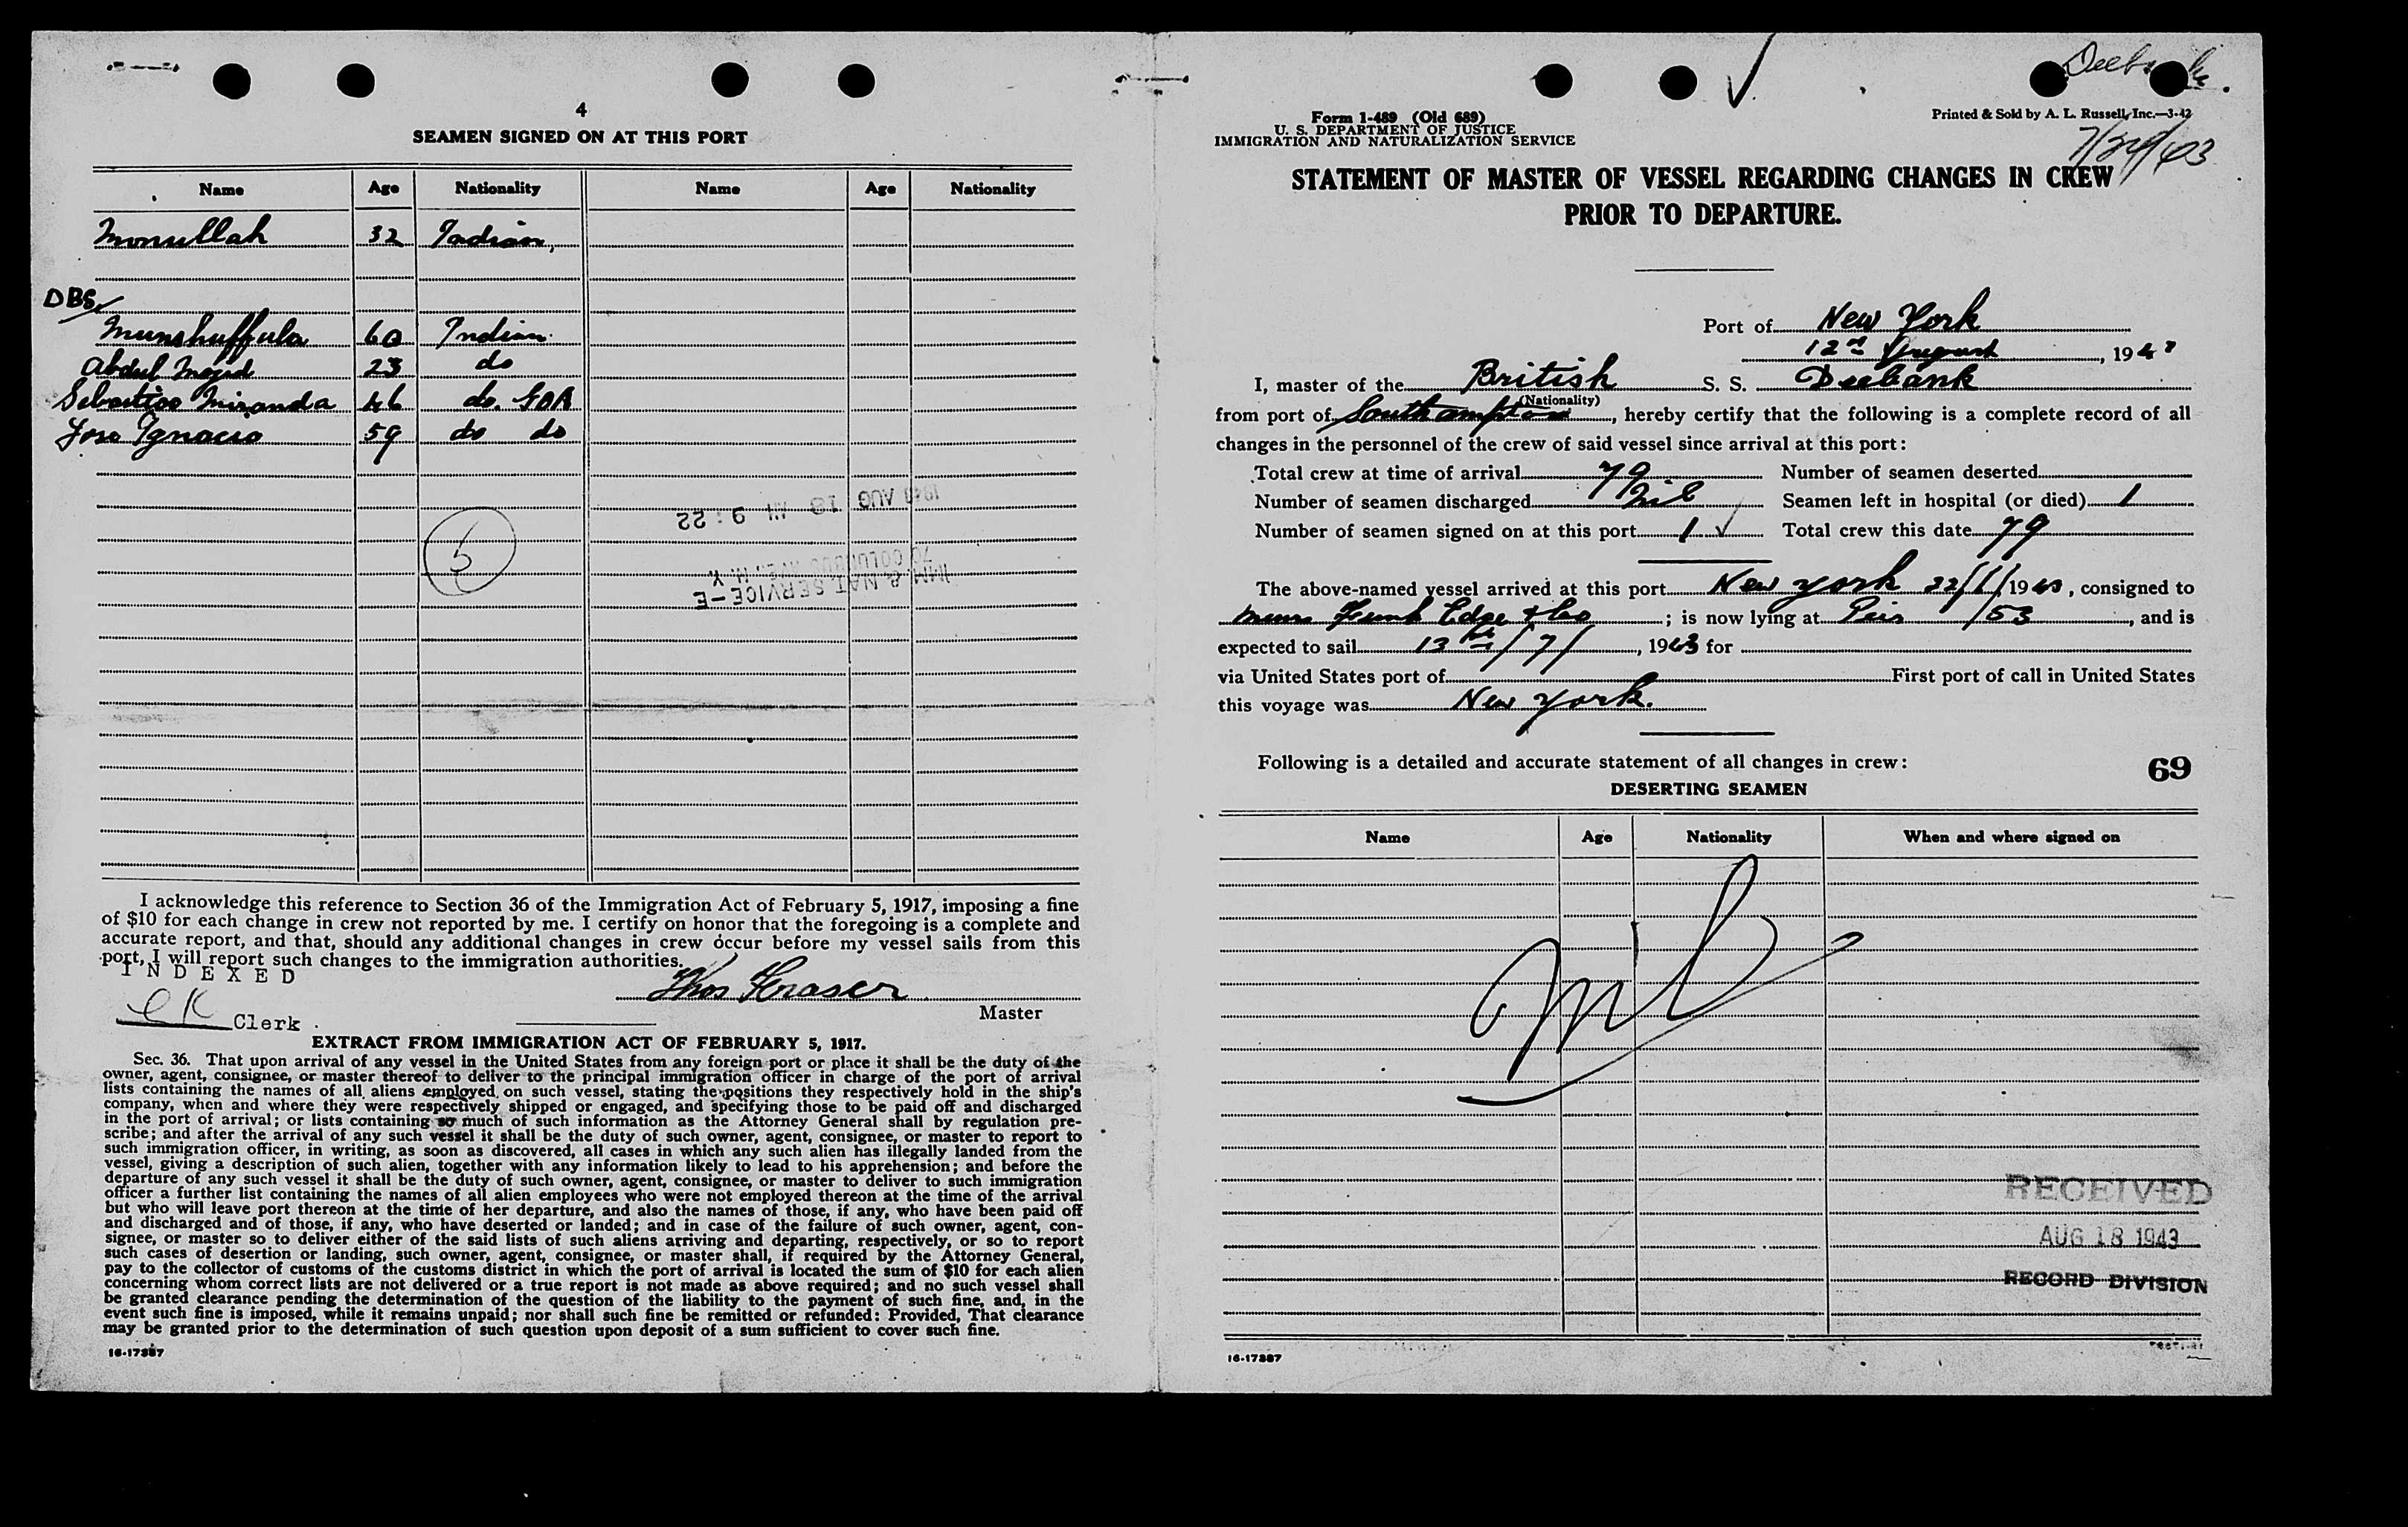 4
SEAMEN SIGNED ON AT THIS PORT
Name Age Nationality Name Age Nationality
Monullah 32 Indian
DBS
Munshuffula 60 Indian
Abdul Majid 23 do
Sebastiao Miranda 46 do. GOA
Jose Ignacio 59 do do
5
1943 AUG 18 AM 9:22
IMM. & NAT. SERVICE-E
70 COLUMBUS AVE., N. Y.
I acknowledge this reference to Section 36 of the Immigration Act of February 5, 1917, imposing a fine
of $10 for each change in crew not reported by me. I certify on honor that the foregoing is a complete and
accurate report, and that, should any additional changes in crew occur before my vessel sails from this
port, I will report such changes to the immigration authorities.
INDEXED
Thos Fraser
Master
CK Clerk
EXTRACT FROM IMMIGRATION ACT OF FEBRUARY 5, 1917.
Sec. 36. That upon arrival of any vessel in the United States from any foreign port or place it shall be the duty of the
owner, agent, consignee, or master thereof to deliver to the principal immigration officer in charge of the port of arrival
lists containing the names of all aliens employed on such vessel, stating the positions they respectively hold in the ship's
company, when and where they were respectively shipped or engaged, and specifying those to be paid off and discharged
in the port of arrival; or lists containing so much of such information as the Attorney General shall by regulation pre-
scribe; and after the arrival of any such vessel it shall be the duty of such owner, agent, consignee, or master to report to
such immigration officer, in writing, as soon as discovered, all cases in which any such alien has illegally landed from the
vessel, giving a description of such alien, together with any information likely to lead to his apprehension; and before the
departure of any such vessel it shall be the duty of such owner, agent, consignee, or master to deliver to such immigration
officer a further list containing the names of all alien employees who were not employed thereon at the time of the arrival
but who will leave port thereon at the time of her departure, and also the names of those, if any, who have been paid off
and discharged and of those, if any, who have deserted or landed; and in case of the failure of such owner, agent, con-
signee, or master so to deliver either of the said lists of such aliens arriving and departing, respectively, or so to report
such cases of desertion or landing, such owner, agent, consignee, or master shall, if required by the Attorney General,
pay to the collector of customs of the customs district in which the port of arrival is located the sum of $10 for each alien
concerning whom correct lists are not delivered or a true report is not made as above required; and no such vessel shall
be granted clearance pending the determination of the question of the liability to the payment of such fine, and, in the
event such fine is imposed, while it remains unpaid; nor shall such fine be remitted or refunded: Provided, That clearance
may be granted prior to the determination of such question upon deposit of a sum sufficient to cover such fine.
16-17387
Form 1-489 (Old 689)
U. S. DEPARTMENT OF JUSTICE
IMMIGRATION AND NATURALIZATION SERVICE
Printed & Sold by A. L. Russell, Inc.—3-42
STATEMENT OF MASTER OF VESSEL REGARDING CHANGES IN CREW
PRIOR TO DEPARTURE.
Port of New York
12th August, 194
I, master of the British S. S. Deebank
(Nationality)
from port of Southampton, hereby certify that the following is a complete record of all
changes in the personnel of the crew of said vessel since arrival at this port:
Total crew at time of arrival 79 Number of seamen deserted
Number of seamen discharged Nil Seamen left in hospital (or died) 1
Number of seamen signed on at this port 1 ✓ Total crew this date 79
The above-named vessel arrived at this port New York 1943, consigned to
; is now lying at Pier 53, and is
expected to sail 13th/7/, 1943 for
via United States port of First port of call in United States
this voyage was New York.
Following is a detailed and accurate statement of all changes in crew:
69
DESERTING SEAMEN
Name Age Nationality When and where signed on
Nil
RECEIVED
AUG 18 1943
RECORD DIVISION
16-17387